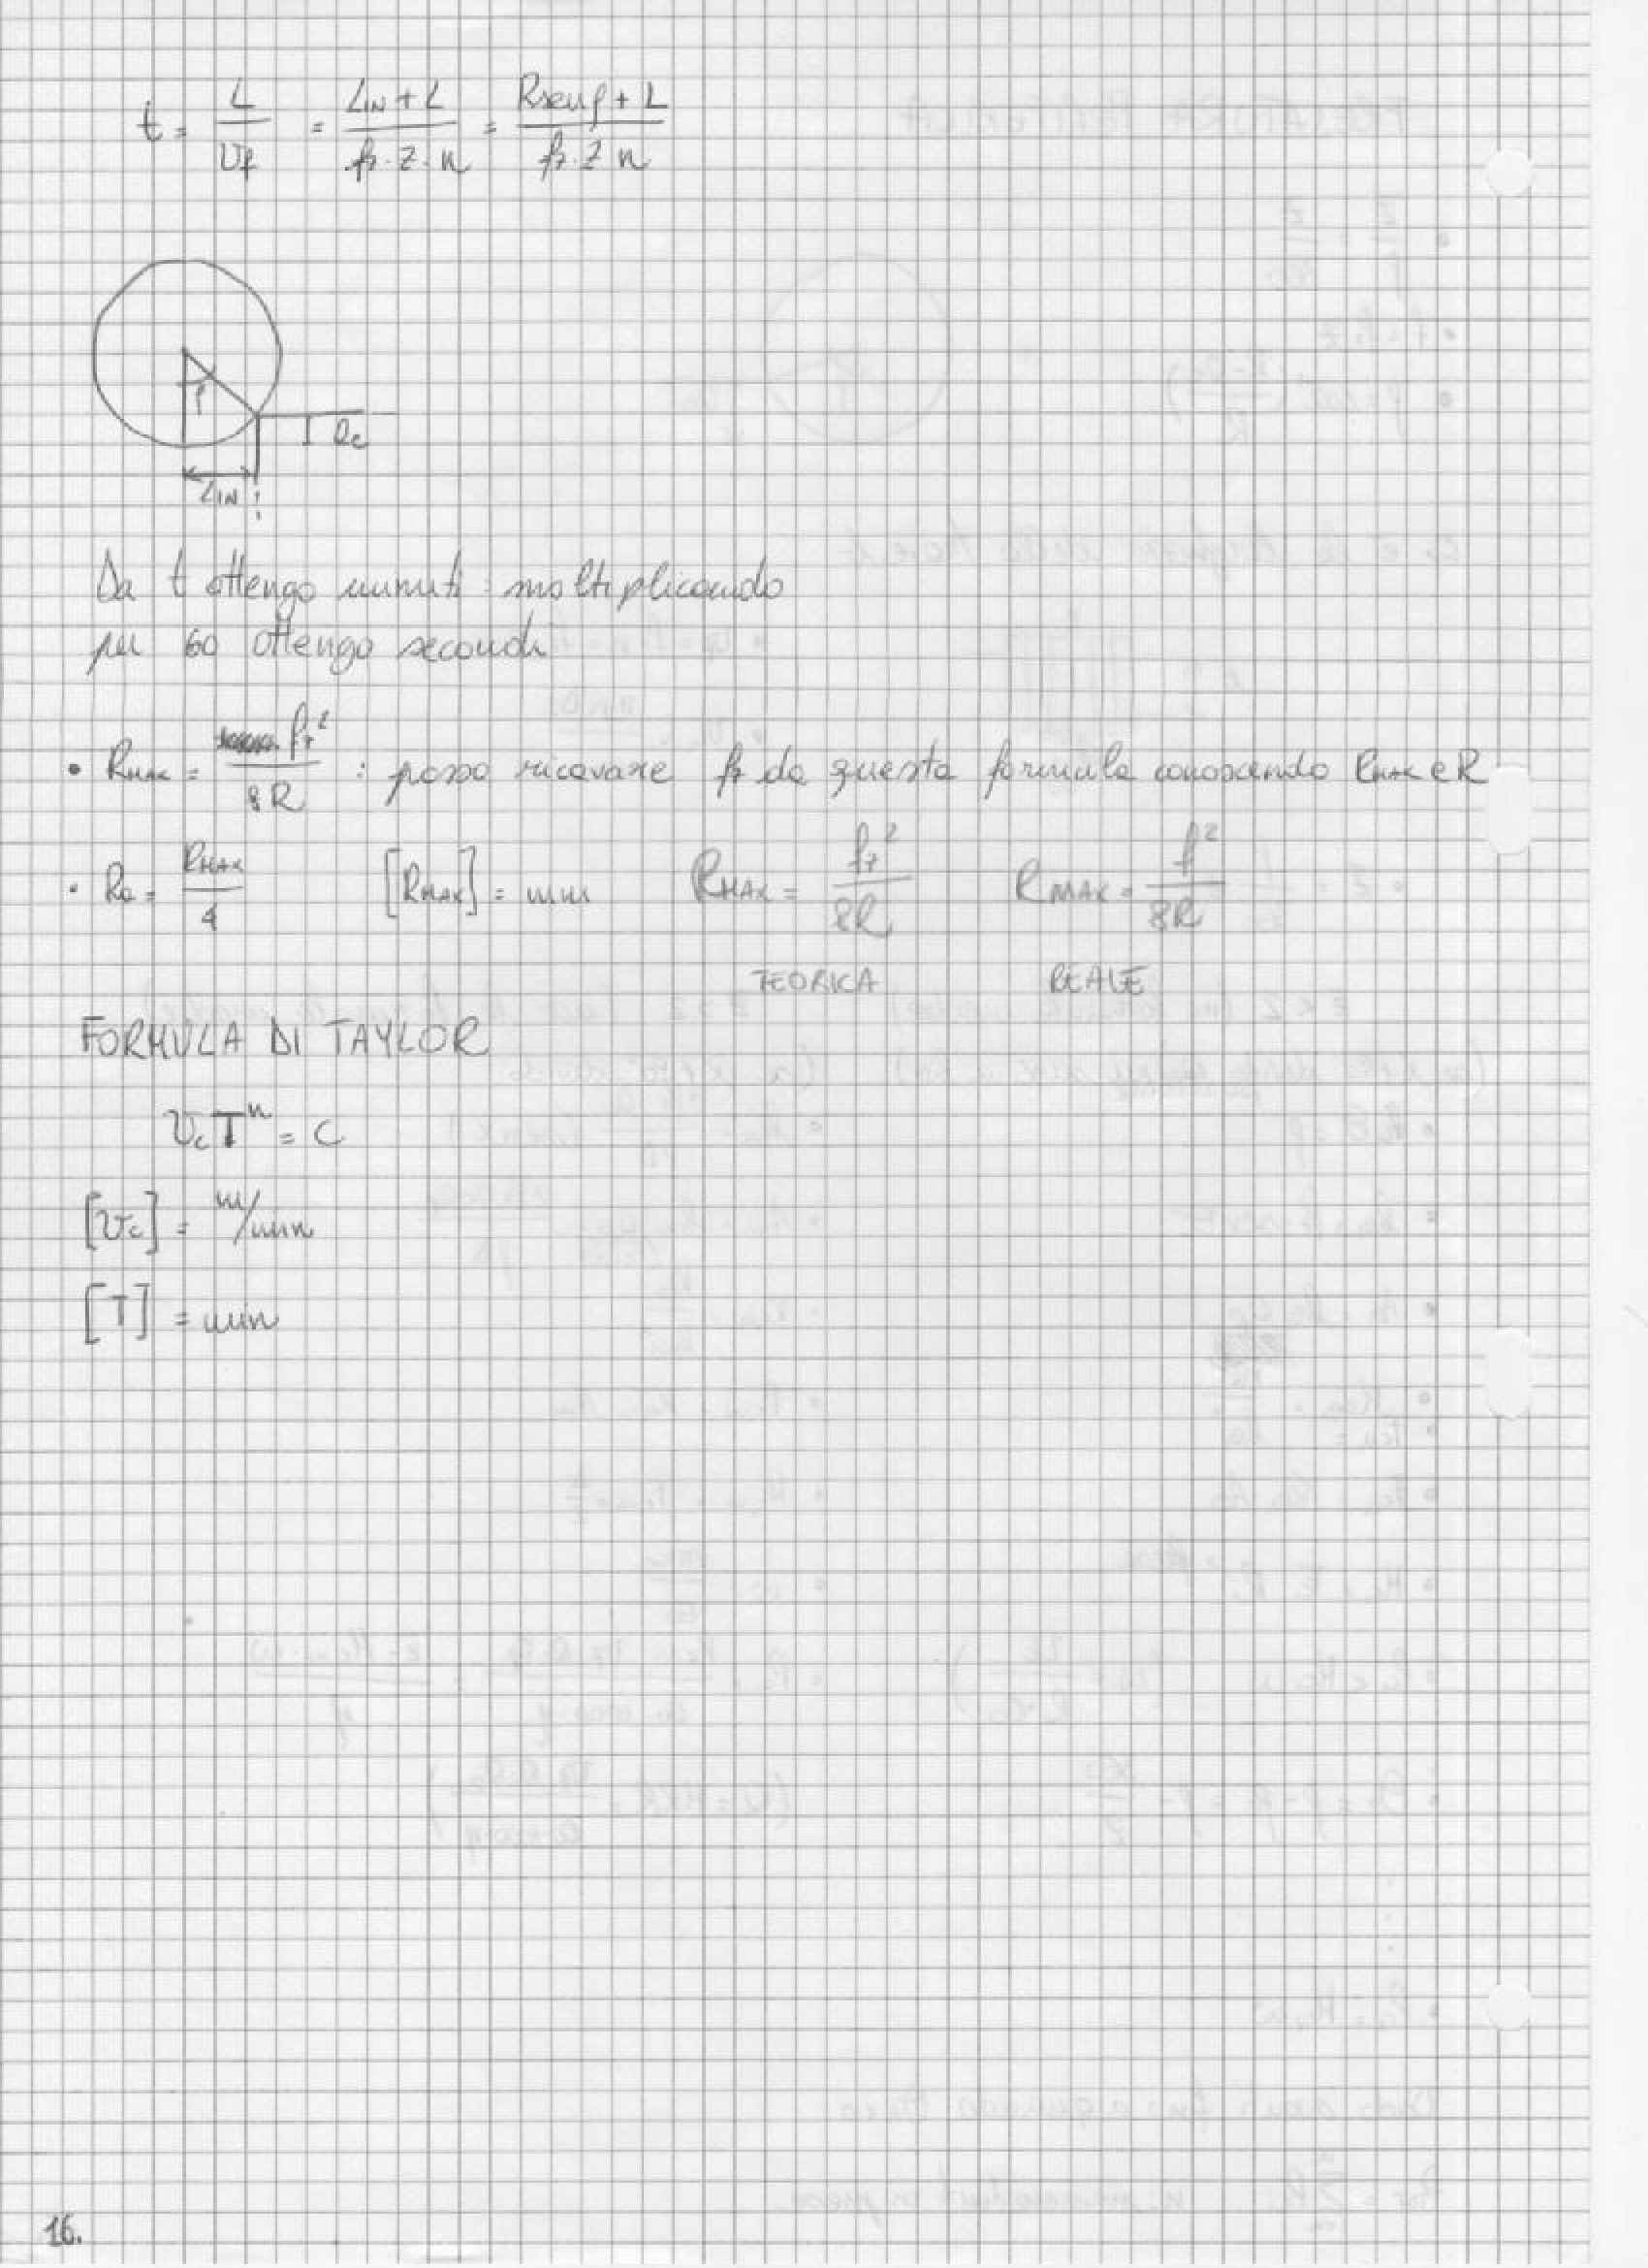 t = L / vf = (LIN + L) / (fz · Z · n) = (R sen φ + L) / (fz · Z n)
φ
ae
LIN
Da t ottengo minuti : moltiplicando
per 60 ottengo secondi
• RMAX = fz² / 8R : posso ricavare fz da questa formula conoscendo RMAX e R
• Ra = RMAX / 4 [RMAX] = mm RMAX = fz² / 8R RMAX = f² / 8R
TEORICA REALE
FORMULA DI TAYLOR
vc Tⁿ = C
[vc] = m/min
[T] = min
16.